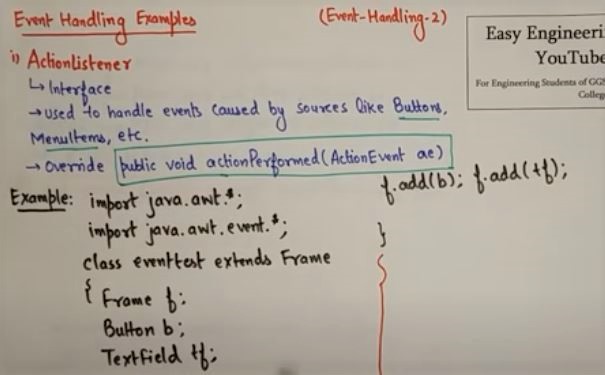 Event Handling Examples
(Event-Handling-2)
Easy Engineeri
YouTube
For Engineering Students of GGS
College
i) ActionListener
↳ Interface
→ used to handle events caused by sources like Buttons,
MenuItems, etc.
→ Override public void actionPerformed(ActionEvent ae)
Example: import java.awt.*;
import java.awt.event.*;
class eventtest extends Frame
{ Frame f;
Button b;
Textfield tf;
f.add(b); f.add(tf);
}